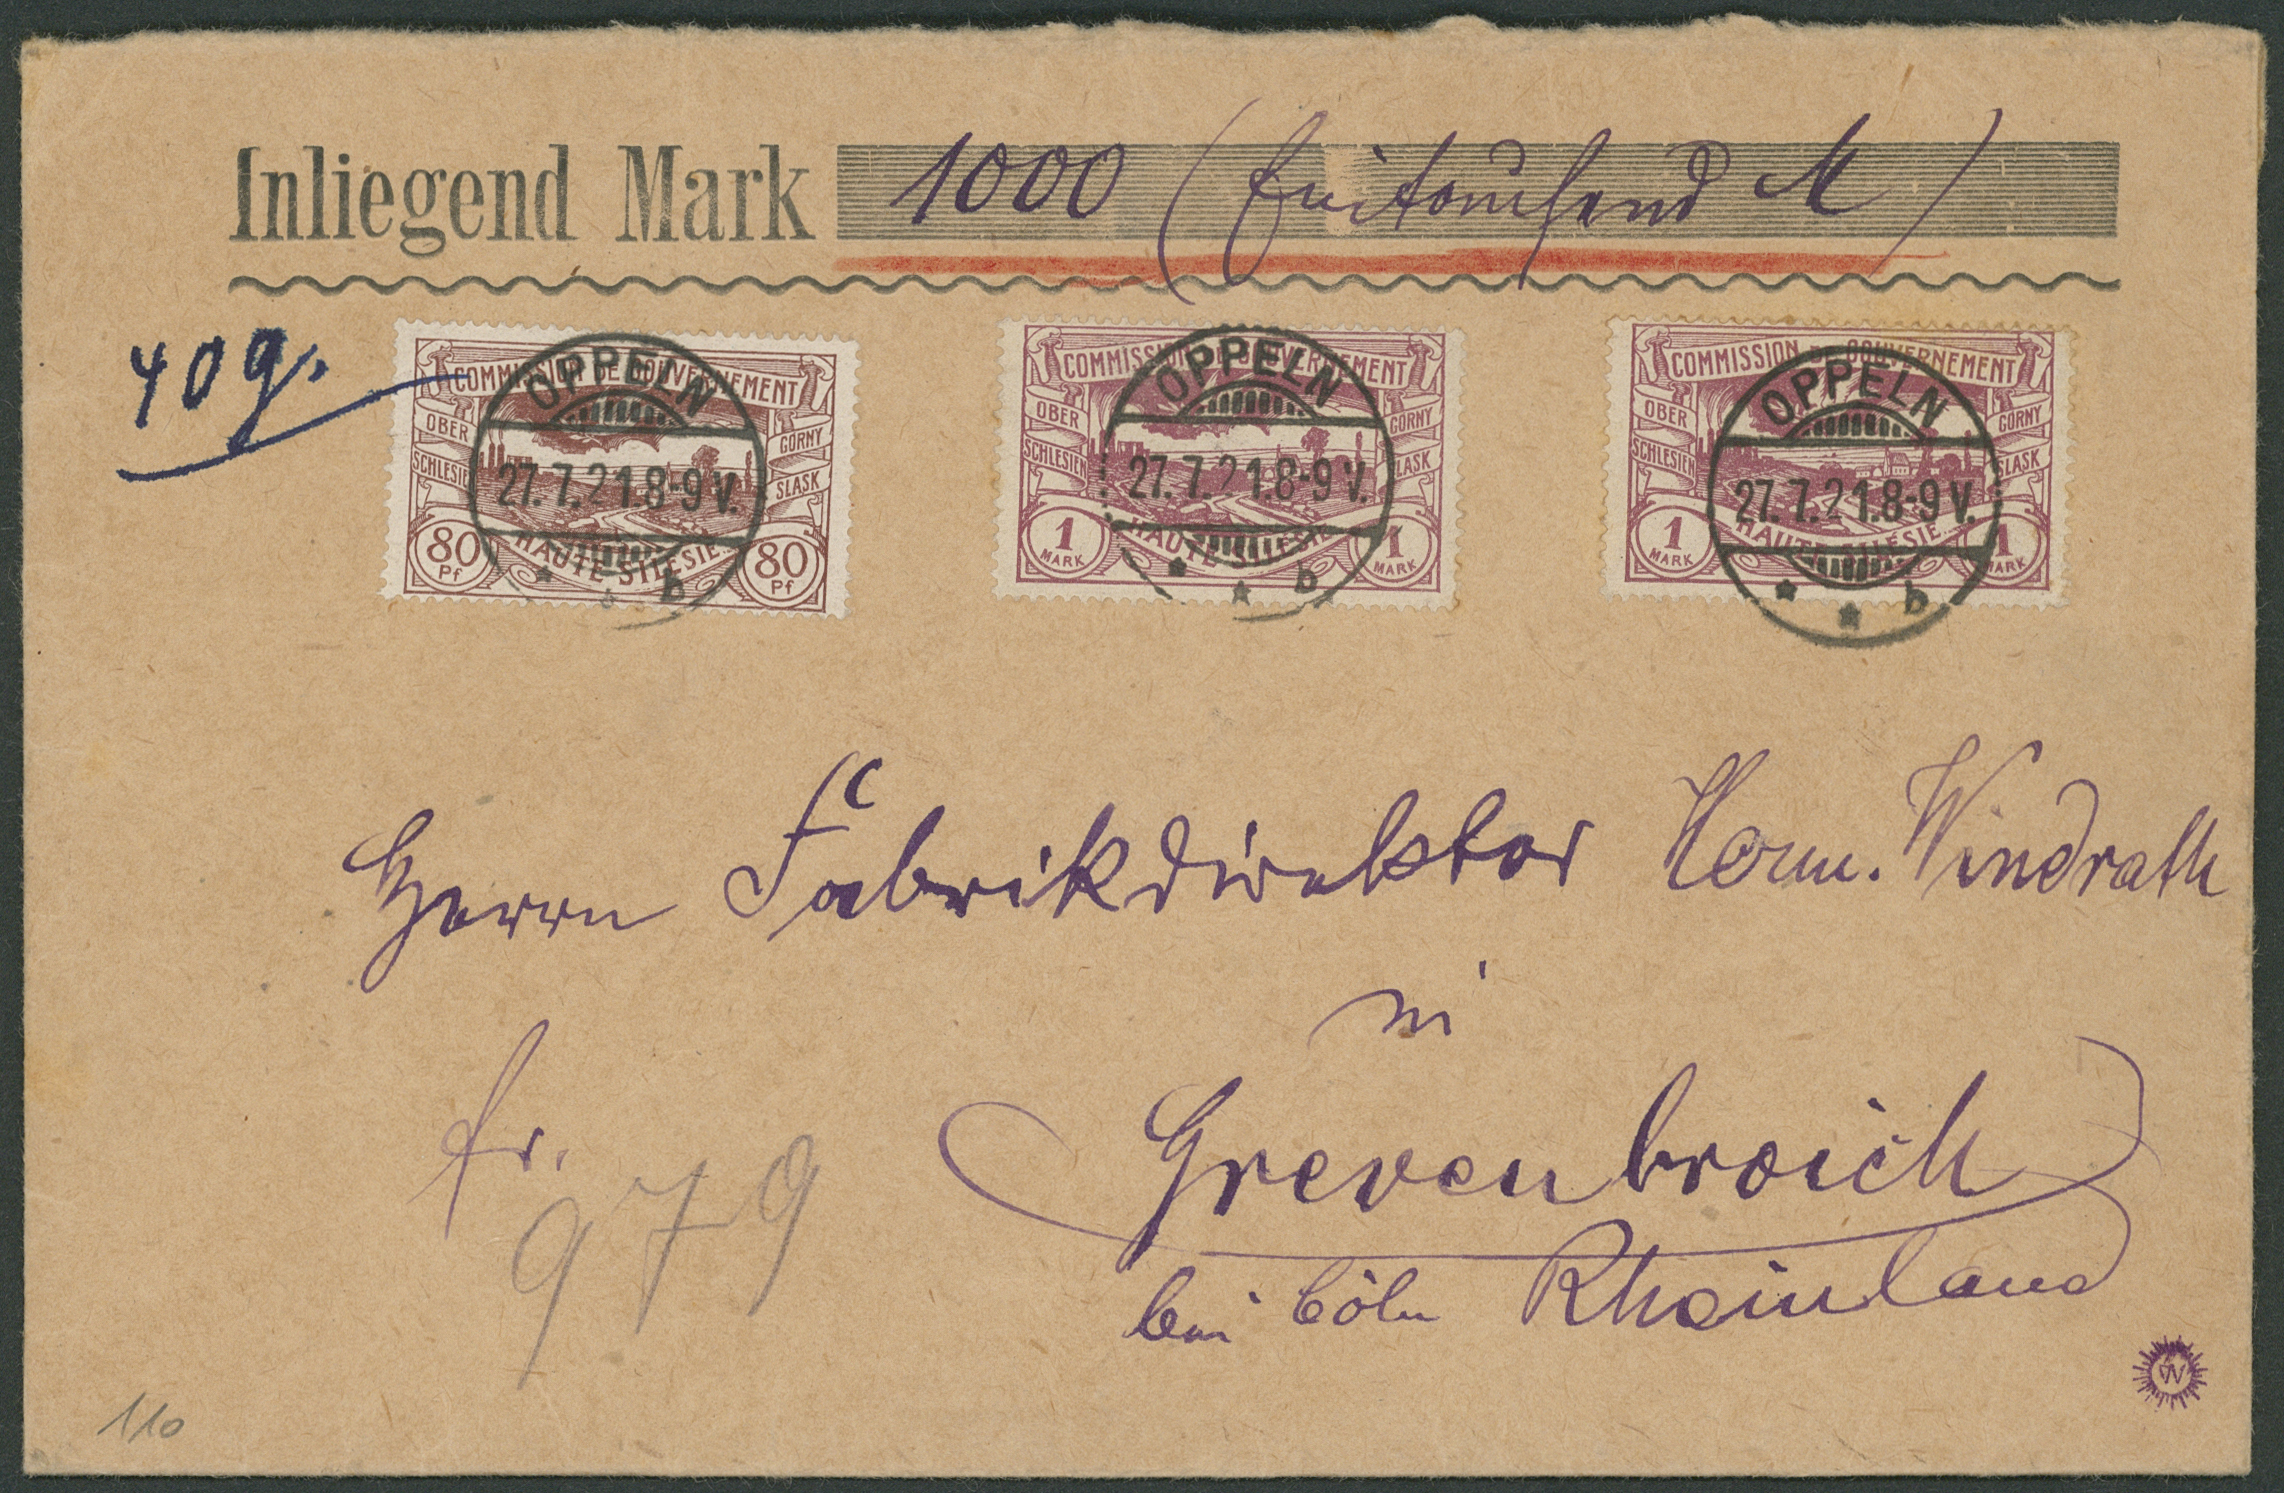 Inliegend Mark 1000 (Eintausend M)
40 g.
COMMISSION DE GOUVERNEMENT
OBER SCHLESIEN
GORNY SLASK
HAUTE SILESIE
80 Pf
80 Pf
OPPELN
27.7.21.8-9 V.
* * b
COMMISSION DE GOUVERNEMENT
OBER SCHLESIEN
GORNY SLASK
HAUTE SILESIE
1 MARK
1 MARK
OPPELN
27.7.21.8-9 V.
* * b
COMMISSION DE GOUVERNEMENT
OBER SCHLESIEN
GORNY SLASK
HAUTE SILESIE
1 MARK
1 MARK
OPPELN
27.7.21.8-9 V.
* * b
Herrn Fabrikdirektor Herm. Windrath
in
fr.
979
Grevenbroich
bei Cöln Rheinland
110